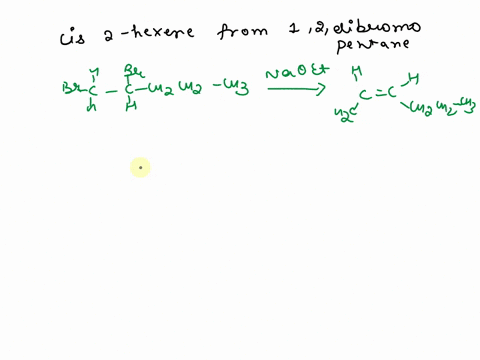 cis 2-hexene from 1,2, dibromo
pentane
H Br
Br-C-C-CH2 CH2-CH3 NaOEt H H
H H C=C
H2C CH2 CH2-CH3